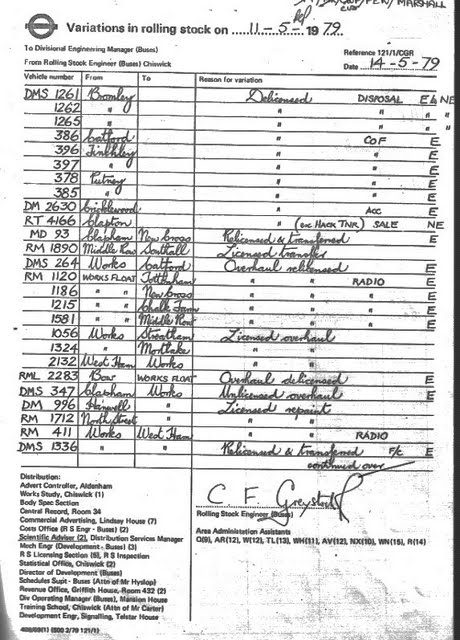 MARSHALL
Variations in rolling stock on 11-5-1979
To Divisional Engineering Manager (Buses)
Reference 121/1/CGR
From Rolling Stock Engineer (Buses) Chiswick
Date 14-5-79
Vehicle number From To Reason for variation
DMS 1261 Bromley Delicensed DISPOSAL E
1262 " " " E
1265 " " " E
386 Catford " COF E
396 Finchley " " E
397 " " " E
378 Putney " " E
385 " " " E
DM 2630 Cricklewood " Acc E
RT 4166 Clapton " (ex HACK TNR) SALE NE
MD 93 Clapham New Cross Relicensed & transferred E
RM 1890 Middle Row Southall Licensed transfer
DMS 264 Works Catford Overhaul relicensed E
RM 1120 WORKS FLOAT Tottenham " " RADIO E
1186 " " New Cross " " E
1215 " " Chalk Farm " " E
1581 " " Middle Row " " E
1056 Works Streatham Licensed overhaul
1324 " Mortlake " "
2132 West Ham Works " "
RML 2283 Bow WORKS FLOAT Overhaul delicensed E
DMS 347 Clapham Works Unlicensed overhaul E
DM 996 Hanwell " Licensed repaint
RM 1712 North Street " " "
RM 411 Works West Ham " " RADIO
DMS 1336 " " Relicensed & transferred F/C E
continued over
Distribution:
Advert Controller, Aldenham
Works Study, Chiswick (1)
Body Spec Section
Central Record, Room 34
Commercial Advertising, Lindsay House (7)
Costs Office (R S Engr - Buses) (2)
Scientific Adviser (2), Distribution Services Manager
Mech Engr (Development - Buses) (3)
R S Licensing Section (5), R S Inspection
Statistical Office, Chiswick (2)
Director of Development (Buses)
Schedules Supt - Buses (Attn of Mr Hyslop)
Revenue Office, Griffith House, Room 432 (2)
Div Operating Manager (Buses), Mansion House
Training School, Chiswick (Attn of Mr Carter)
Development Engr, Signalling, Telstar House
C F Greystock
Rolling Stock Engineer (Buses)
Area Administration Assistants
O(9), AR(12), W(12), TL(13), WH(11), AV(12), NX(10), WN(15), R(14)